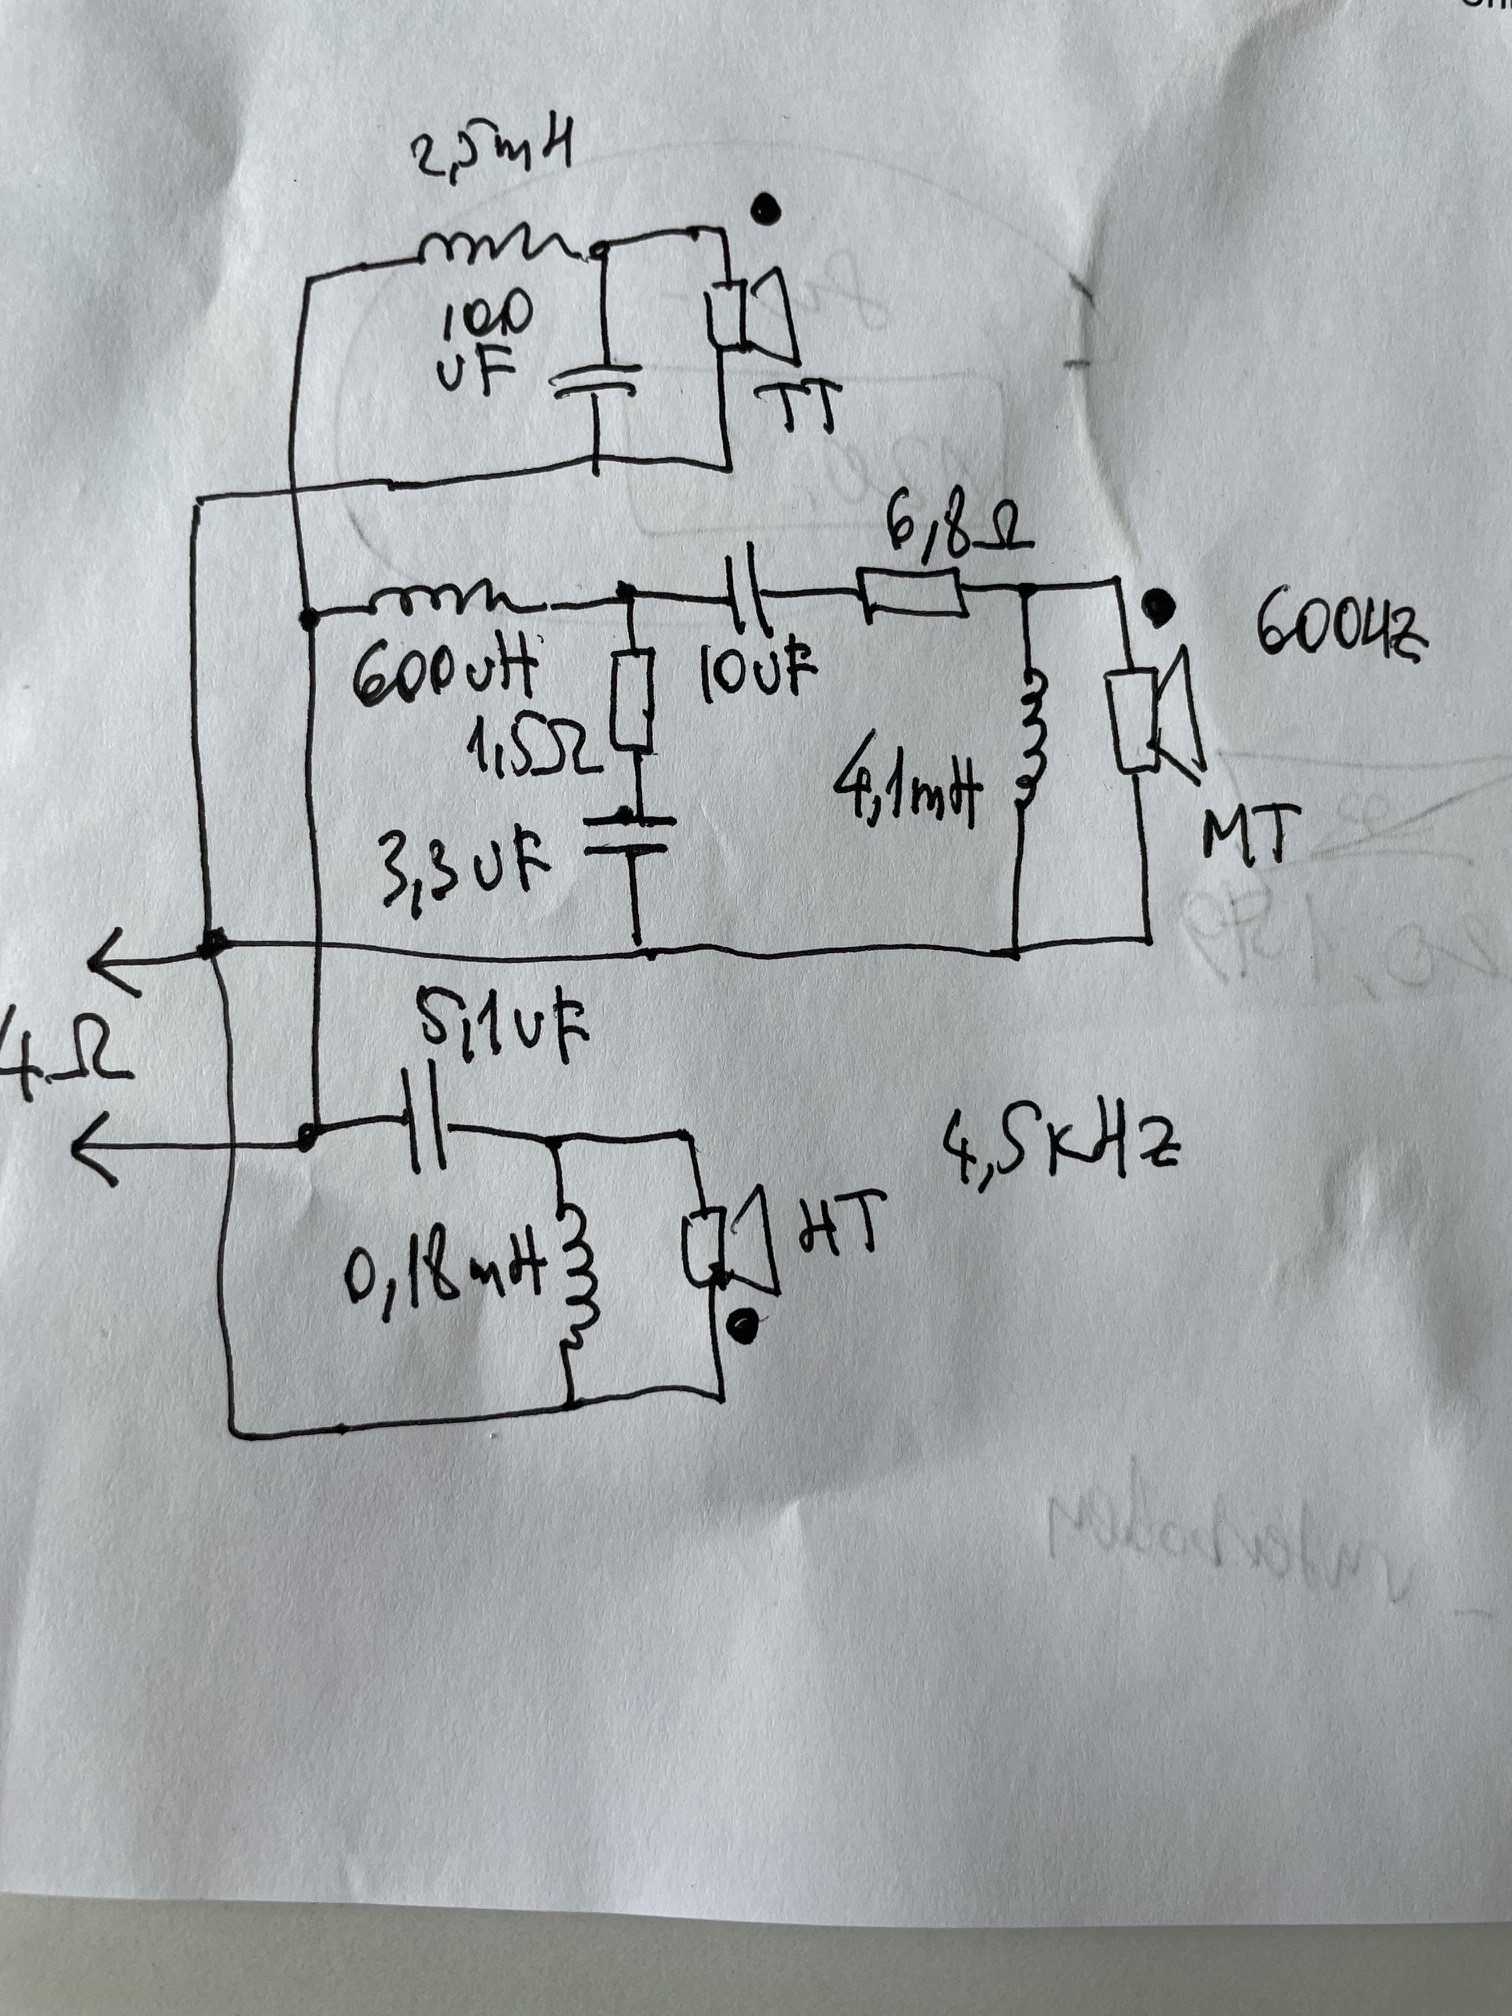 2,5mH
100
uF
TT
6,8Ω
600Hz
600uH
10uF
1,5Ω
4,1mH
3,3uF
MT
4Ω
5,1uF
4,5KHz
HT
0,18mH